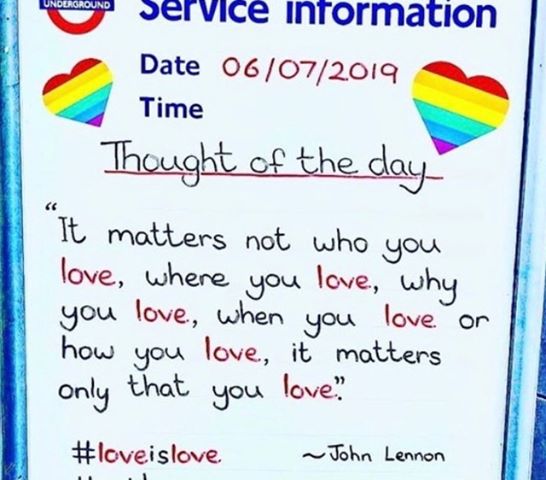 UNDERGROUND
Service information
Date 06/07/2019
Time
Thought of the day
"It matters not who you
love, where you love, why
you love, when you love or
how you love, it matters
only that you love."
#loveislove ~John Lennon